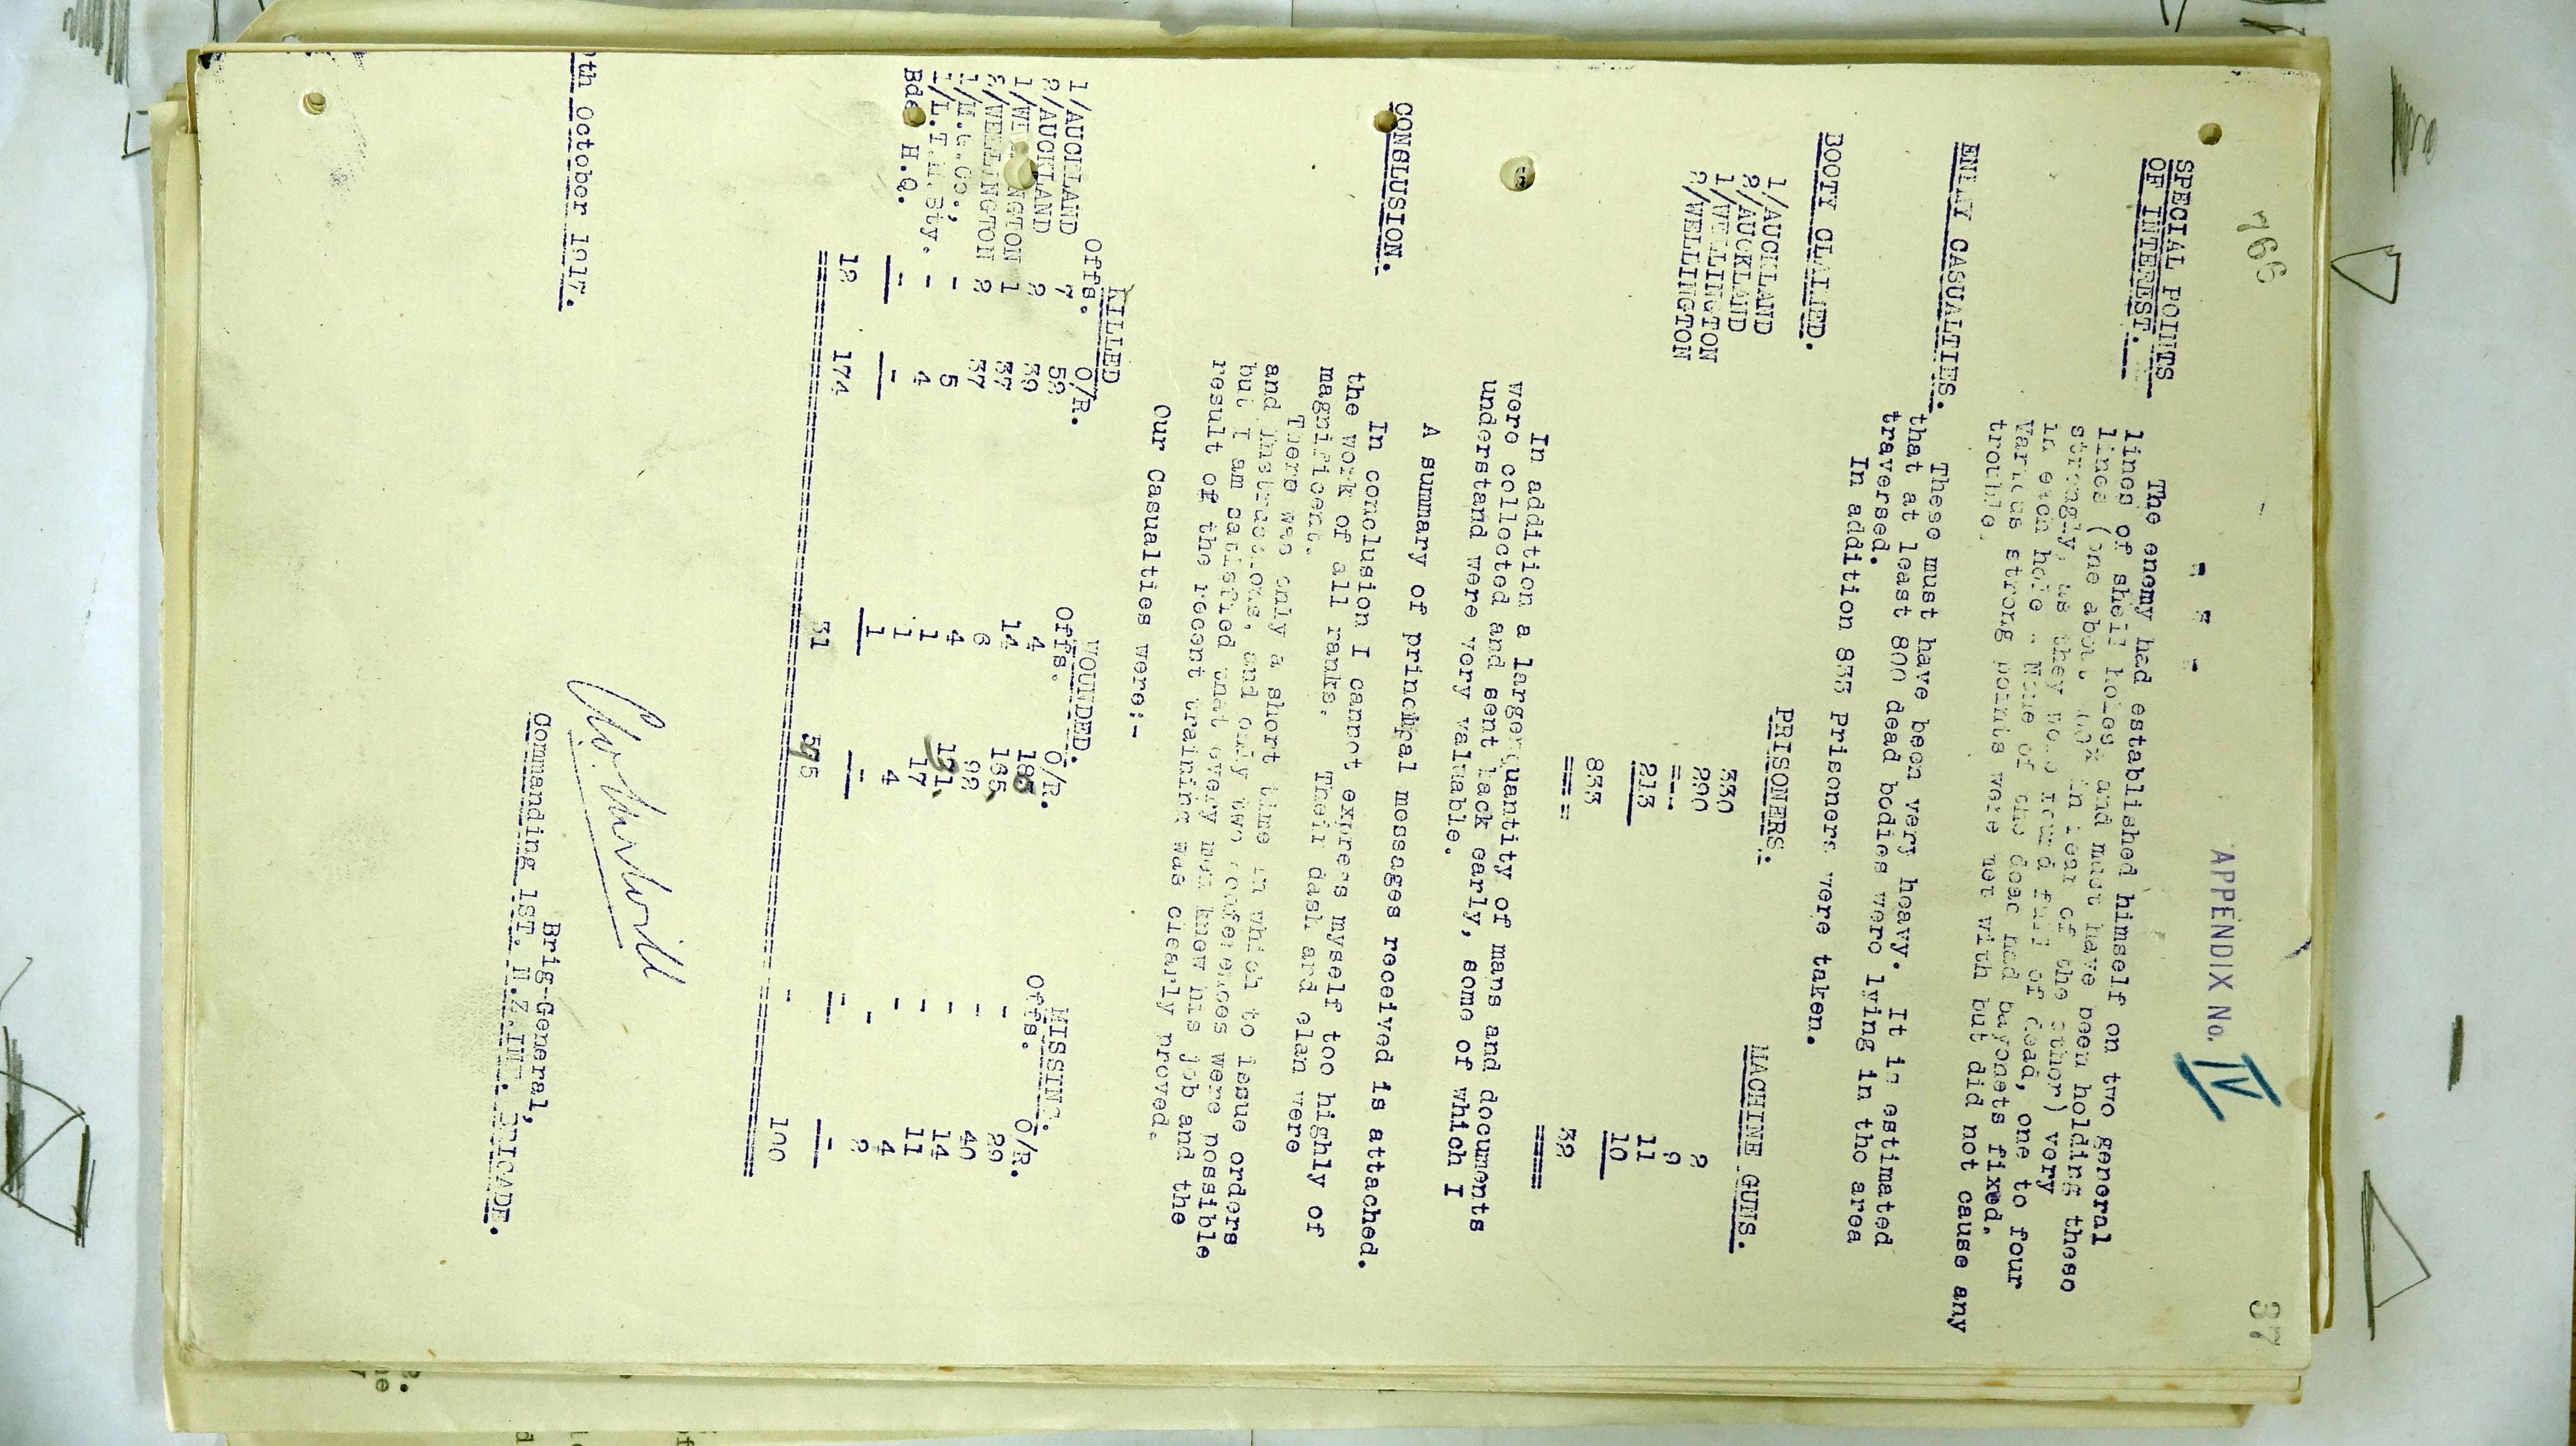 766
37
APPENDIX No. IV
- " - " -
SPECIAL POINTS
OF INTEREST.
The enemy had established himself on two general
lines of shell holes and must have been holding these
lines (one about in rear of the other) very
strongly, as they were found full of dead, one to four
in each hole. None of the dead had bayonets fixed.
Various strong points were met with but did not cause any
trouble.
ENEMY CASUALTIES.
These must have been very heavy. It is estimated
that at least 800 dead bodies were lying in the area
traversed.
In addition 833 Prisoners were taken.
BOOTY CLAIMED.
PRISONERS. MACHINE GUNS.
1/AUCKLAND 330 2
2/AUCKLAND 290 9
1/WELLINGTON --- 11
2/WELLINGTON 213 10
833 32
In addition a large quantity of maps and documents
were collected and sent back early, some of which I
understand were very valuable.
A summary of principal messages received is attached.
CONCLUSION.
In conclusion I cannot express myself too highly of
the work of all ranks. Their dash and elan were
magnificent.
There was only a short time in which to issue orders
and instructions, and only two conferences were possible
but I am satisfied that every man knew his job and the
result of the recent training was clearly proved.
Our Casualties were:-
KILLED WOUNDED. MISSING.
Offs. O/R. Offs. O/R. Offs. O/R.
1/AUCKLAND 7 52 4 185 - 29
2/AUCKLAND 2 39 14 165 - 40
1/WE NGTON 1 37 6 92 - 14
2/WELLINGTON 2 37 4 131 - 11
1/M.G.Co., - 5 1 17 - 4
1/L.T.M.Bty. - 4 1 4 - 2
Bde H.Q. - - 1 - - -
12 174 31 595 - 100
Brig-General,
Commanding 1ST. N.Z.INF. BRIGADE.
th October 1917.